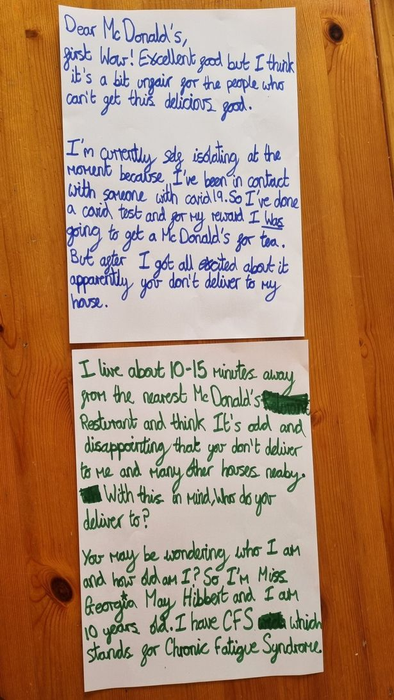 Dear McDonald's,
first Wow! Excellent food but I think
it's a bit unfair for the people who
can't get this delicious food.
I'm currently self isolating at the
moment because I've been in contact
with someone with covid19. So I've done
a covid test and for my reward I was
going to get a McDonald's for tea.
But after I got all excited about it
apparently you don't deliver to my
house.
I live about 10-15 minutes away
from the nearest McDonald's
Resturant and think It's odd and
disappointing that you don't deliver
to me and many other houses neaby.
With this in mind, who do you
deliver to?
You may be wondering who I am
and how old am I? So I'm Miss
Georgia May Hibbert and I am
10 years old. I have CFS which
stands for Chronic Fatigue Syndrome.